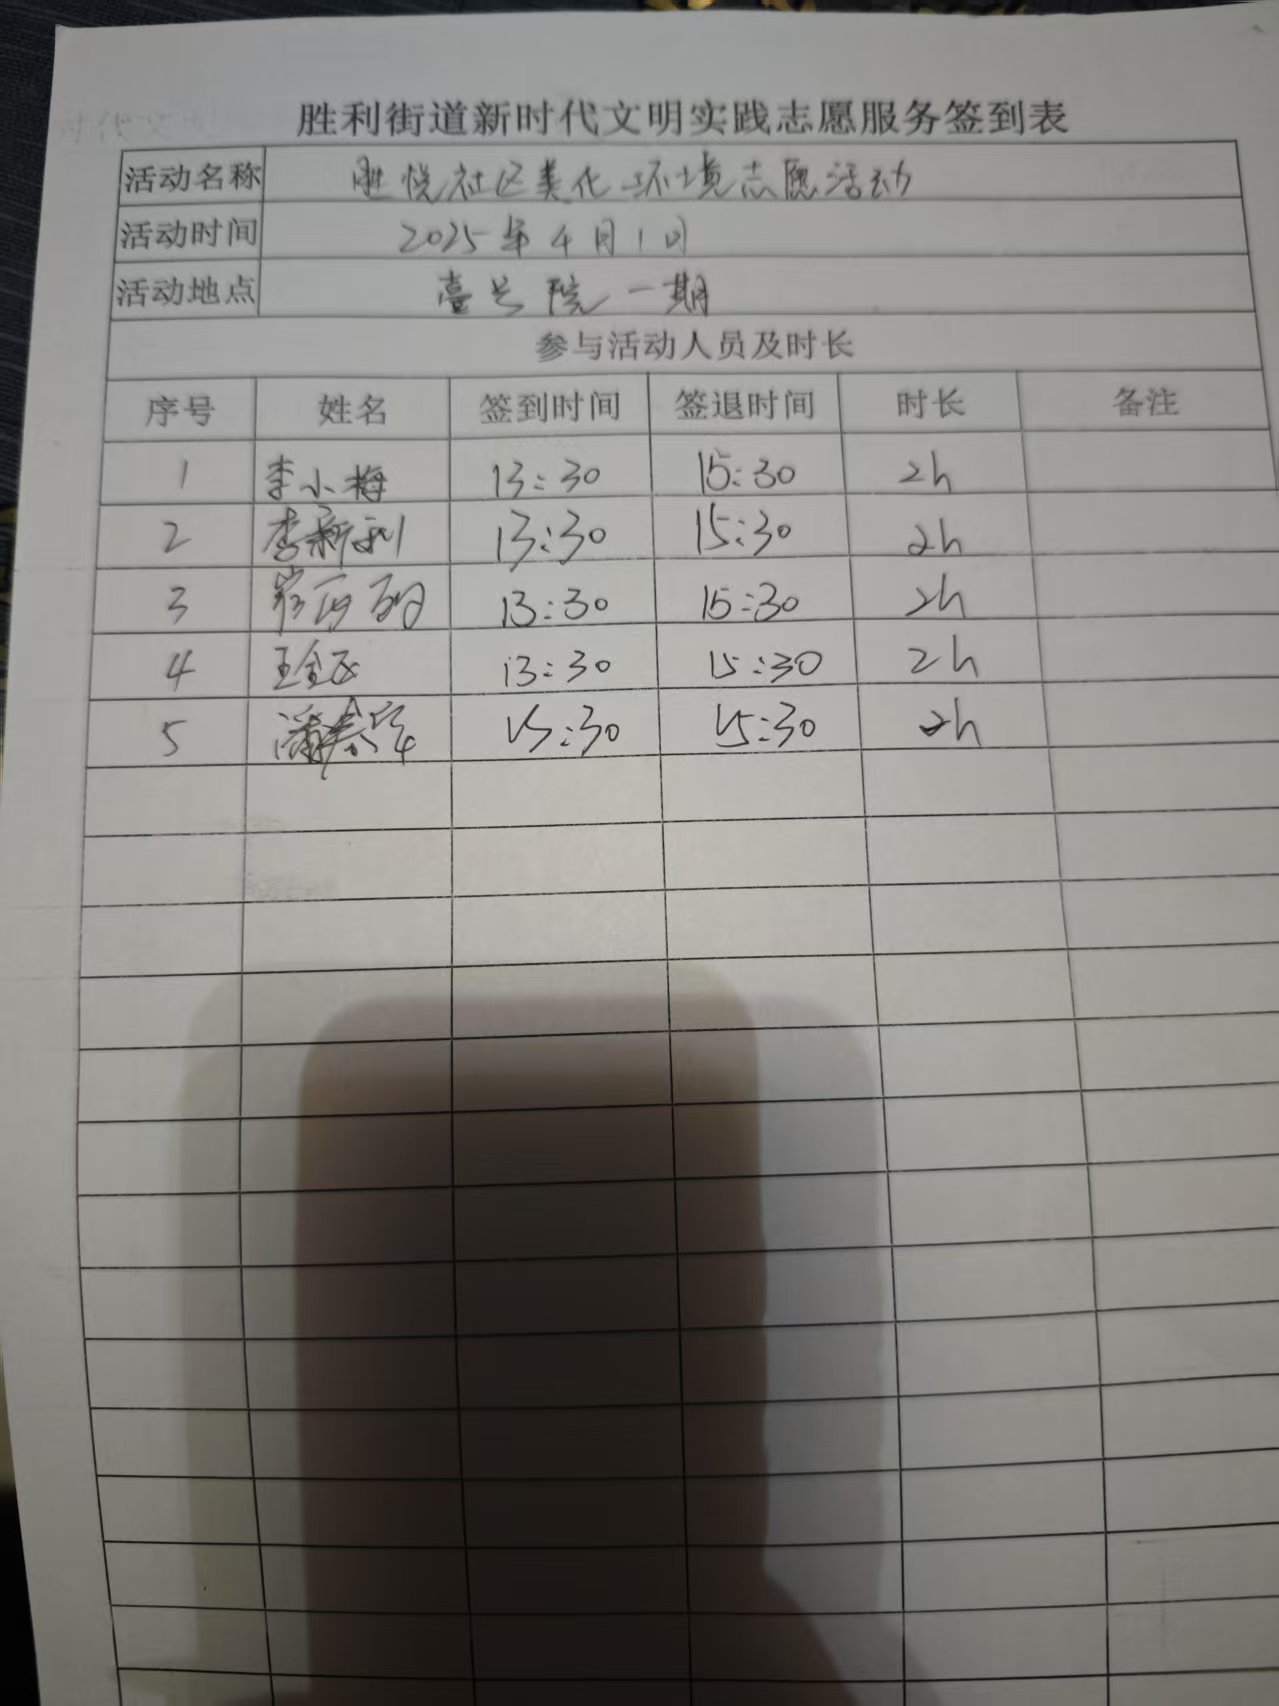 胜利街道新时代文明实践志愿服务签到表
活动名称 胜悦社区美化环境志愿活动
活动时间 2025年4月1日
活动地点 壹号院一期
参与活动人员及时长
序号 姓名 签到时间 签退时间 时长 备注
1 李小梅 13:30 15:30 2h
2 李新利 13:30 15:30 2h
3 13:30 15:30 2h
4 13:30 15:30 2h
5 15:30 15:30 2h